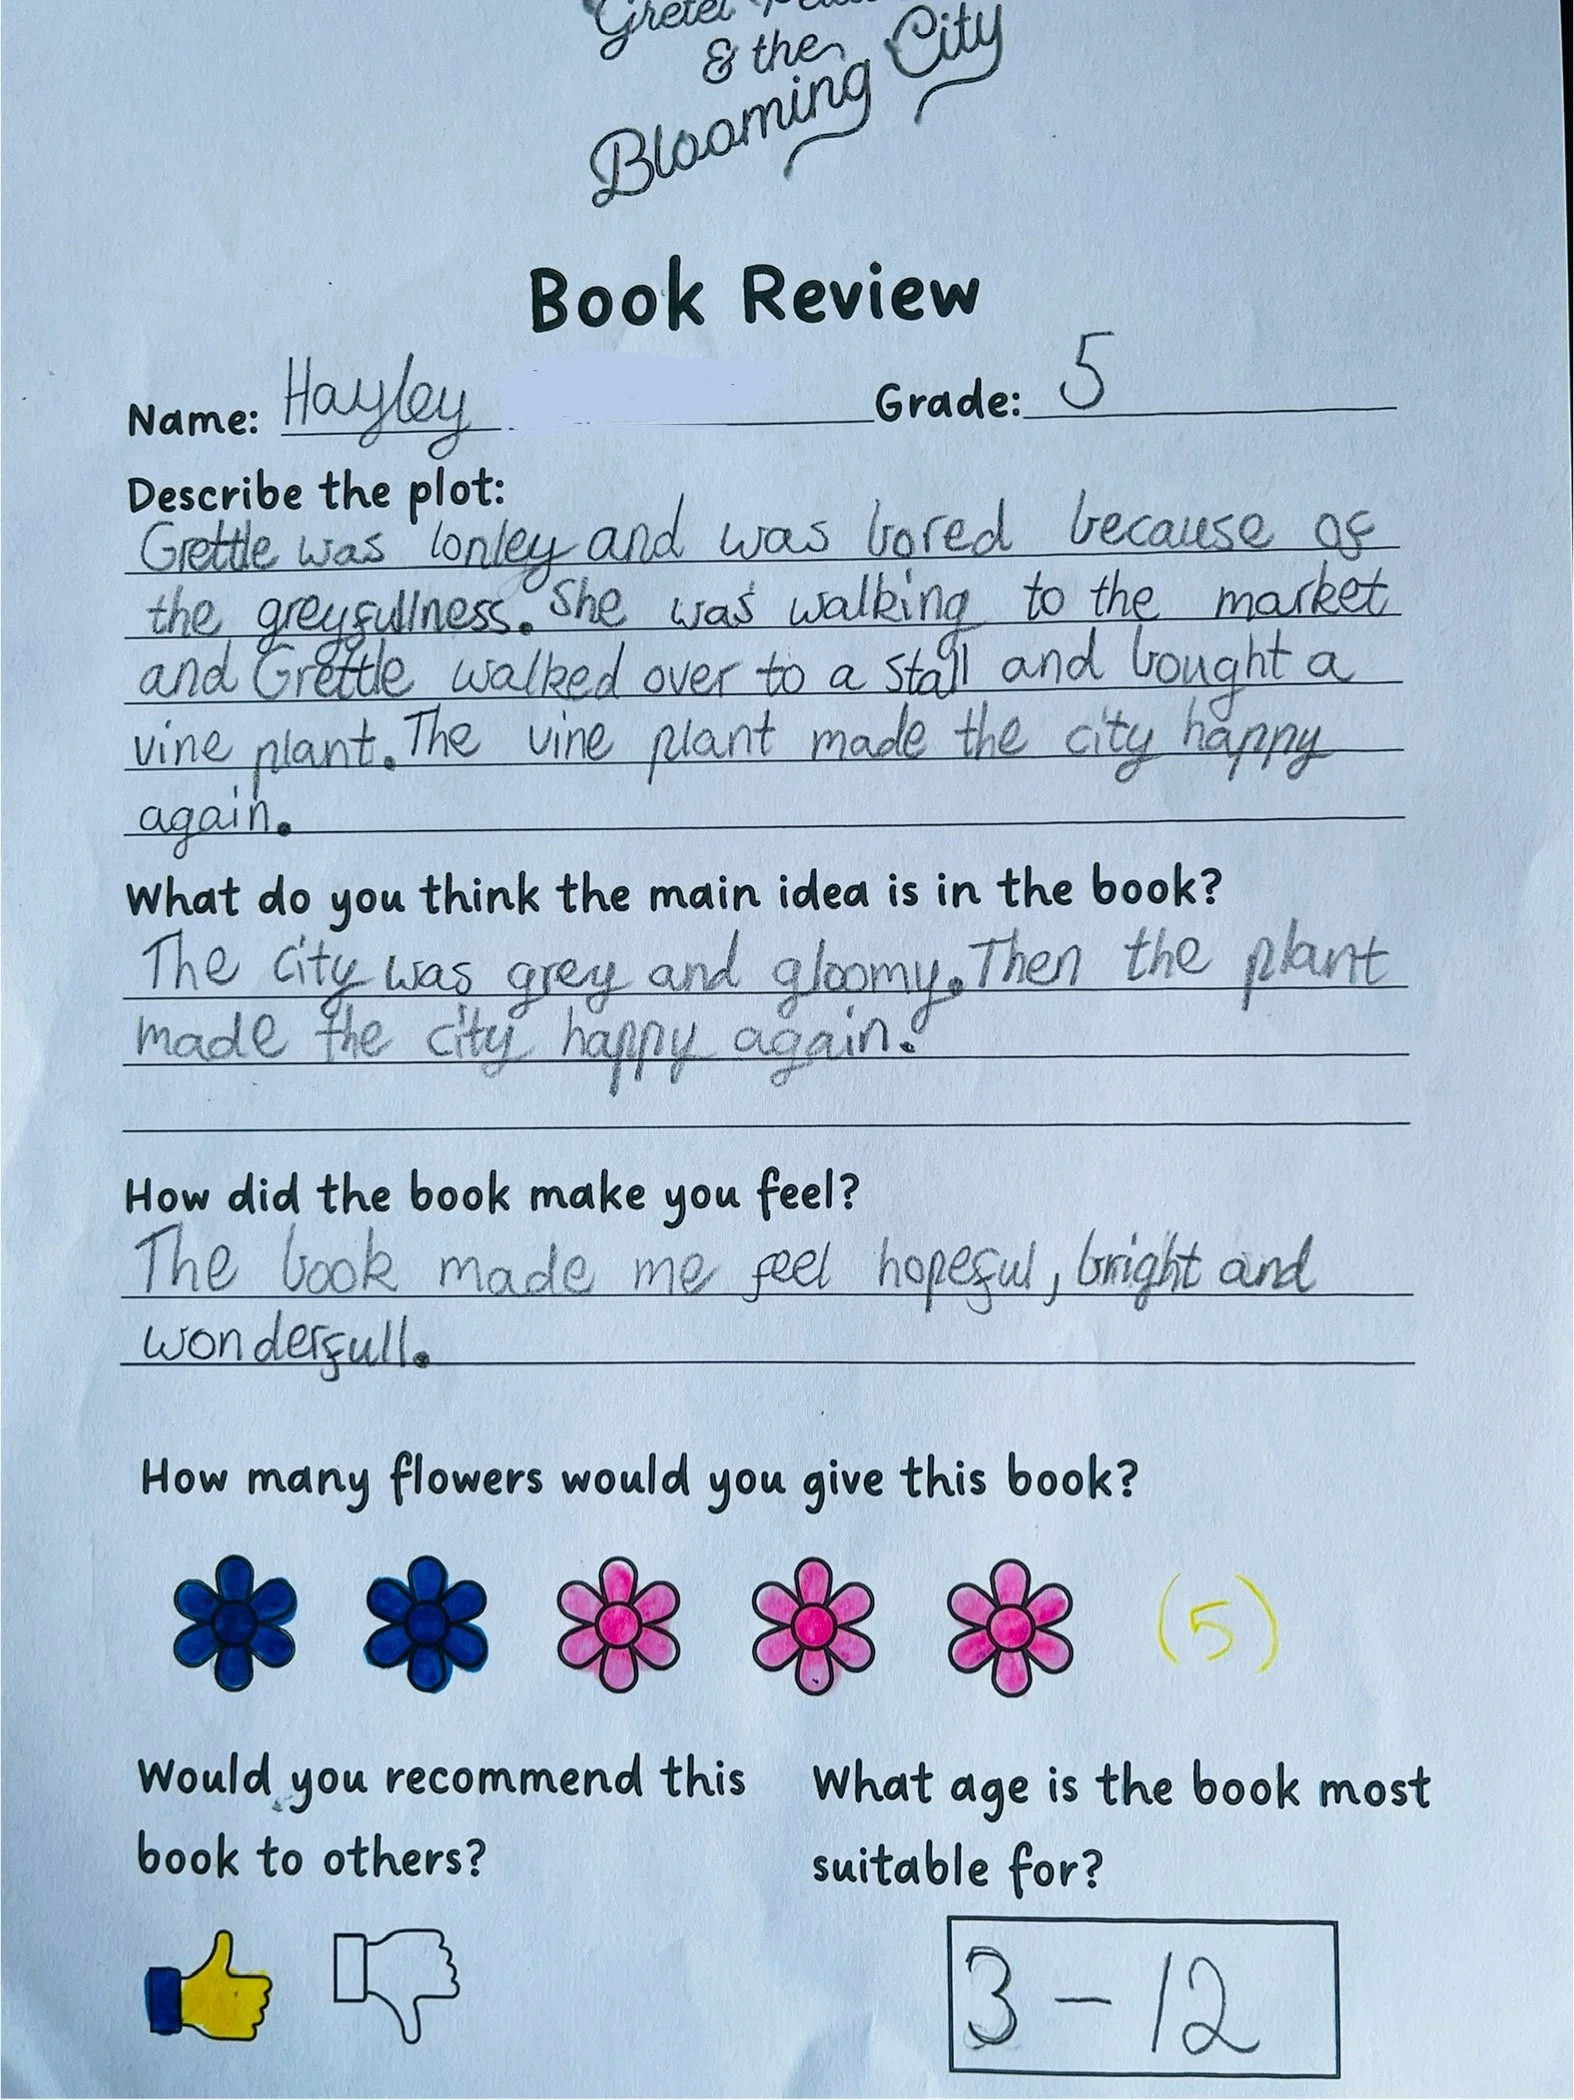 Gretel
& the
Blooming City
Book Review
Name: Hayley Grade: 5
Describe the plot:
Grettle was lonley and was bored because of
the greyfullness. She was walking to the market
and Grettle walked over to a stall and bought a
vine plant. The vine plant made the city happy
again.
What do you think the main idea is in the book?
The city was grey and gloomy. Then the plant
made the city happy again.
How did the book make you feel?
The book made me feel hopeful, bright and
wonderfull.
How many flowers would you give this book?
(5)
Would you recommend this
book to others?
What age is the book most
suitable for?
3 - 12